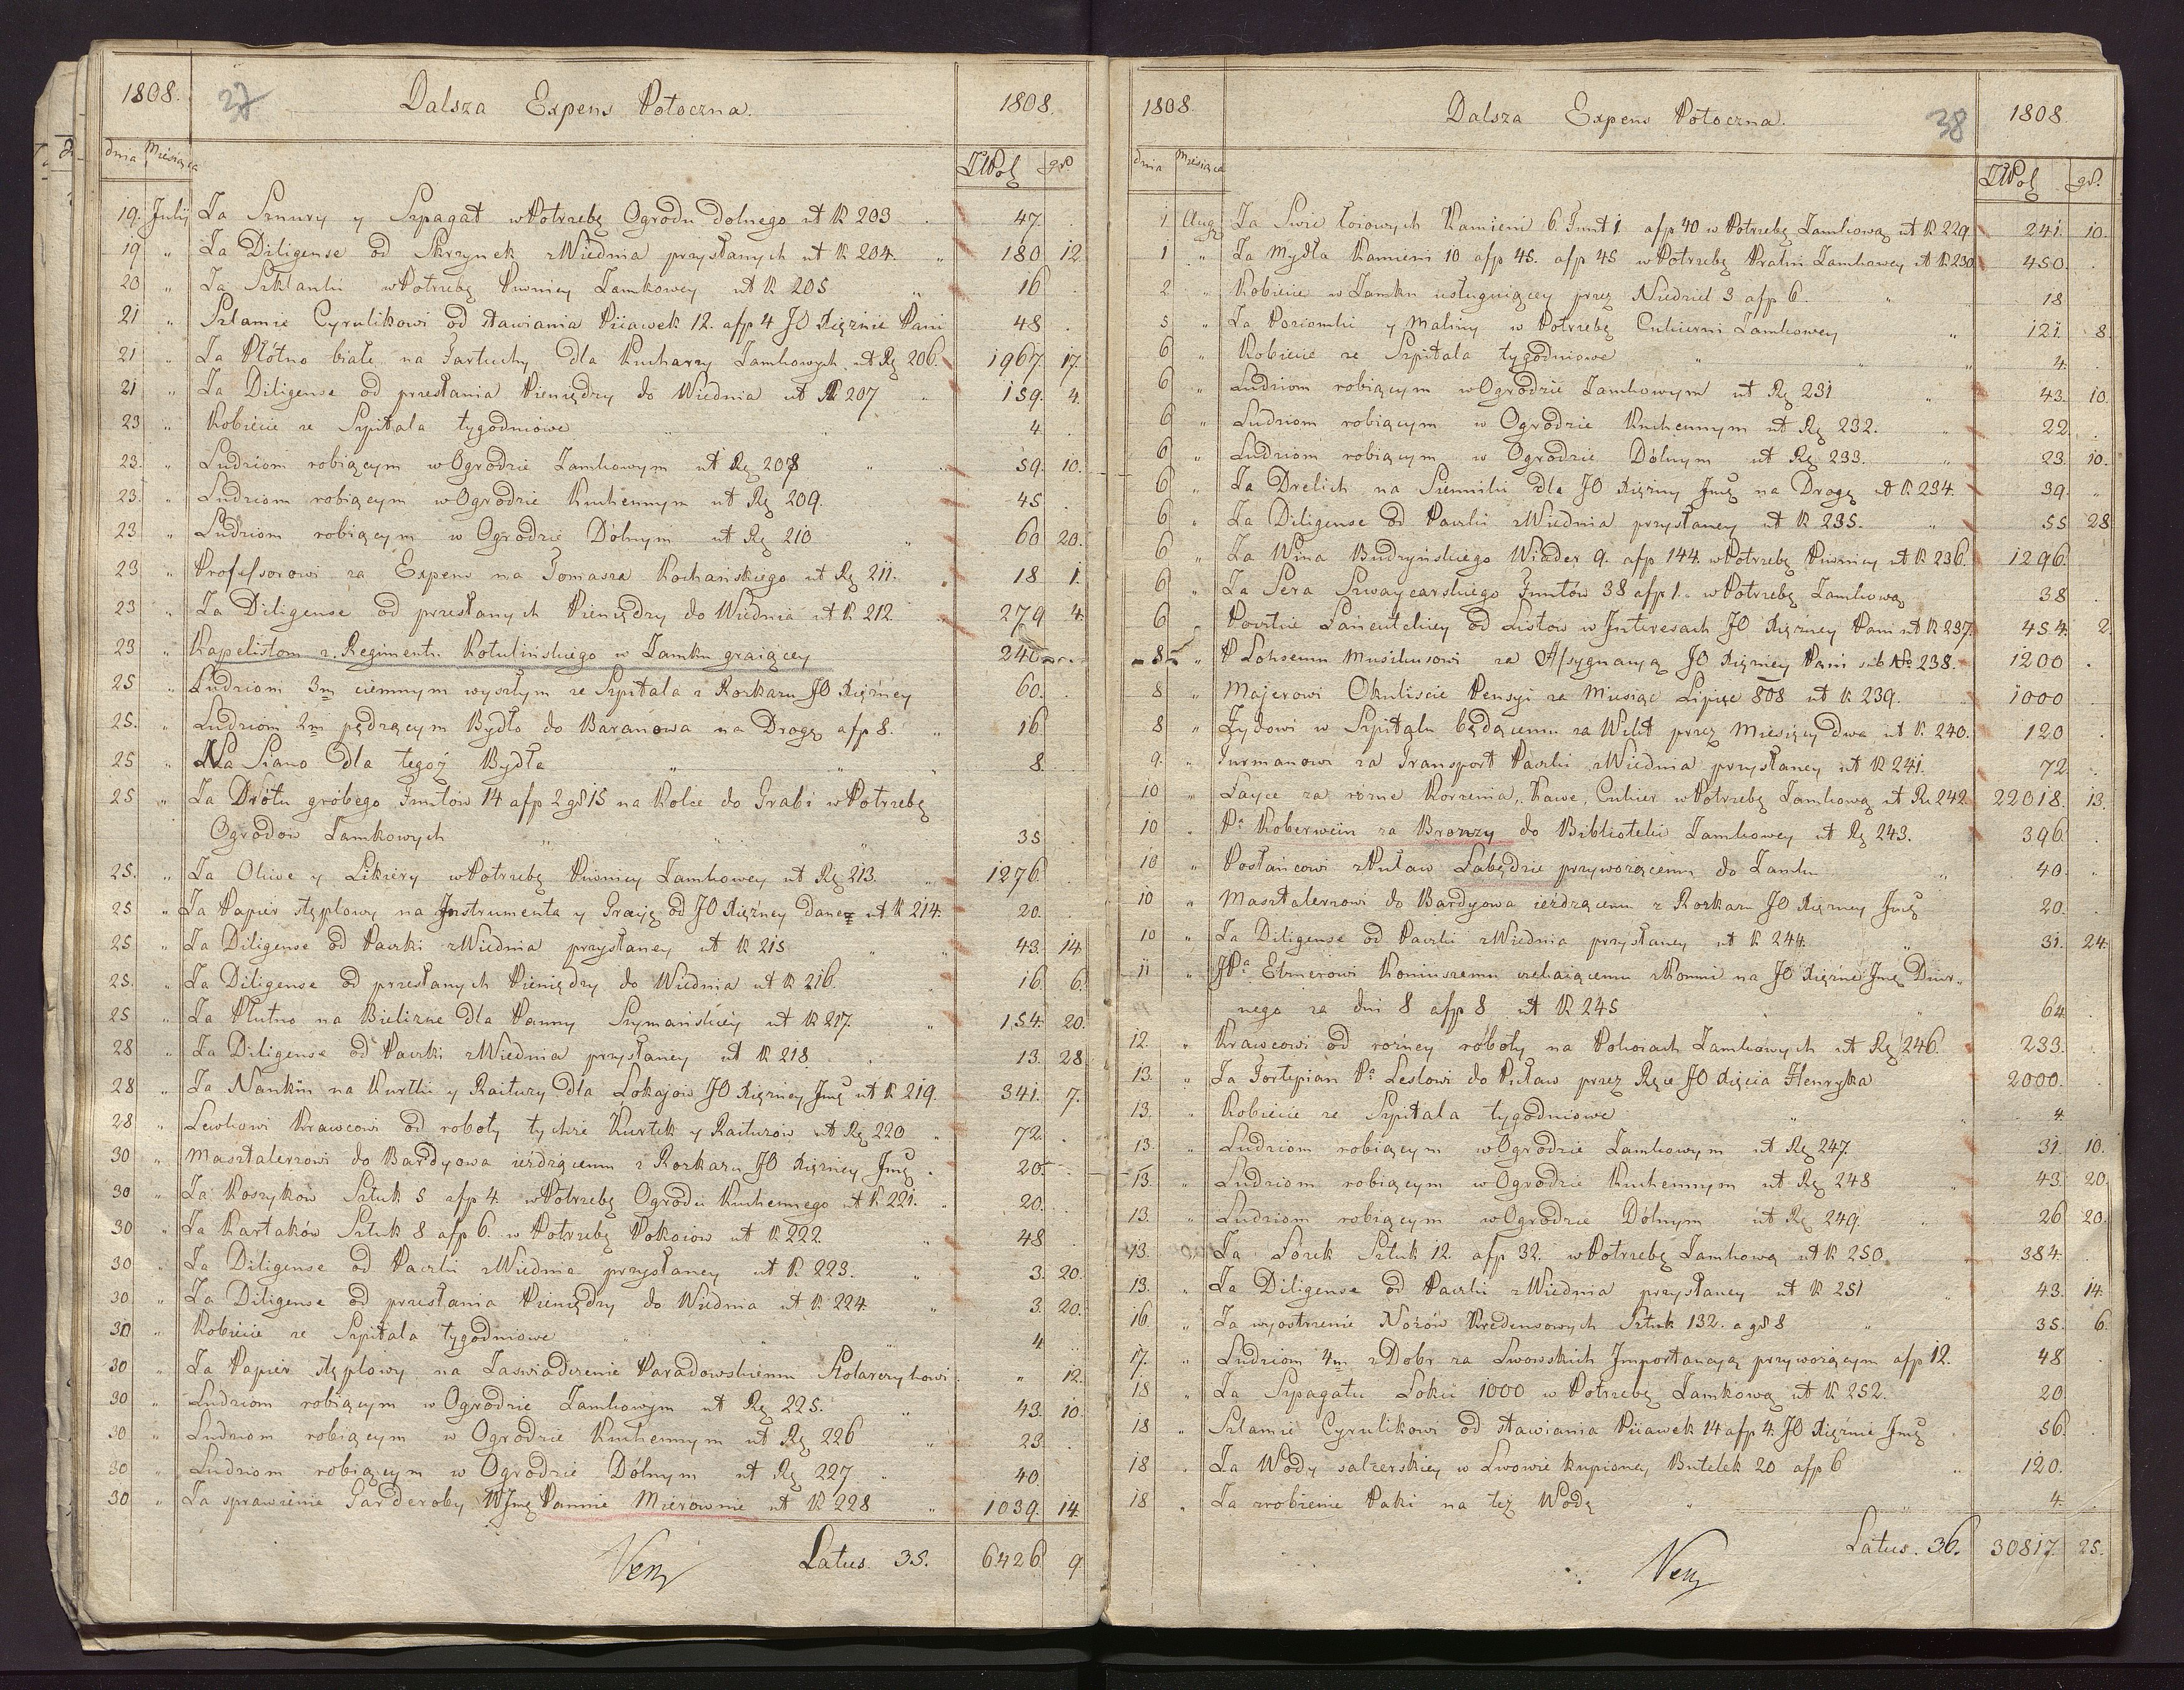 1808. 37 Dalsza Expens Potoczna. 1808.
dnia Miesiąca ZłPol gr.
19. July Za Sznury y Szpagat w Potrzebę Ogrodu dolnego ut R 203 47.
19 " Za Diligense od Skrzynek z Wiednia przysłanych ut R 204. " 180 12
20 " Za Szklanki w Potrzebę Piwnicy Zamkowey ut R 205 " 16
21 " Szlamie Cyrulikowi od stawiania Piiawek 12. afp 4 JO Xiężnie Pani 48
21 " Za Płótno białe na Fartuchy dla Kucharzy Zamkowych ut Rg 206. 1967. 17.
21 " Za Diligense od przesłania Pieniędzy do Wiednia ut R 207 " 159. 4.
23 " Kobiecie ze Szpitala tygodniowe " 4.
23. " Ludziom robiącym w Ogrodzie Zamkowym ut Rg 208 " 59. 10.
23. " Ludziom robiącym w Ogrodzie Kuchennym ut Rg 209. 45
23 " Ludziom robiącym w Ogrodzie Dólnym ut Rg 210 " 60 20.
23 " Professorowi za Expens na Tomasza Kochańskiego ut Rg 211. 18 1.
23 " Za Diligense od przesłanych Pieniędzy do Wiednia ut R 212. 279 4.
23 " Kapelistom z Regimentu Kotulińskiego w Zamku graiącey 240
25 " Ludziom 3m ciemnym wyszłym ze Szpitala z Rozkazu JO Xiężney 60.
25. " Ludziom 2m pędzącym Bydło do Baranowa na Drogę afp 8. " 16
25 " Na Siano dla tegoż Bydła " " " 8.
25 " Za Drótu gróbego Funtów 14 afp 2 gr 15 na Kolce do Grabi w Potrzebę
Ogrodow Zamkowych " " " 35
25. " Za Oliwe y Likiery w Potrzebę Piwnicy Zamkowey ut Rg 213. " 1276.
25 " Za Papier stęplowy na Instrumenta y Gracyę od JO Xiężney dane ut R 214. 20.
25 " Za Diligense od Paczki z Wiednia przysłaney ut R 215 " 43. 14
25. " Za Diligense od przesłanych Pieniędzy do Wiednia ut R 216. 16. 6.
25. " Za Płutno na Bielizne dla Panny Szymańskiey ut R 217. " 154. 20.
28 " Za Diligense od Paczki z Wiednia przysłaney ut R 218. 13. 28
28 " Za Nankin na Kurtki y Raitury dla Lokajow JO Xiężney Jmę ut R 219. 341. 7.
28 " Lewkowi Krawcowi od roboty tychże Kurtek y Raiturow ut Rg 220 " 72.
30 " Masztalerzowi do Bardyowa ieżdzącemu z Rozkazu JO Xiężney Jmę . 20.
30 " Za Koszyków Sztuk 5 afp 4. w Potrzebę Ogrodu Kuchennego ut R 221. 20.
30 " Za Kartaków Sztuk 8 afp 6. w Potrzebę Pokoiow ut R 222 " 48
30 " Za Diligense od Paczki z Wiednia przysłaney ut R 223. " 3. 20.
30 " Za Diligense od przesłania Pieniędzy do Wiednia ut R 224 " 3. 20.
30 " Kobiecie ze Szpitala tygodniowe " " " 4
30 " Za Papier stęplowy na Zaswiadczenie Paradowskiemu Stolarczykowi. " 12.
30 " Ludziom robiącym w Ogrodzie Zamkowym ut Rg 225. " 43. 10.
30 " Ludziom robiącym w Ogrodzie Kuchennym ut Rg 226 " 23.
30 " Ludziom robiącym w Ogrodzie Dólnym ut Rg 227 " 40.
30 " Za sprawienie Garderoby WJmę Pannie Mierównie ut R 228 " 1039. 14.
Latus. 35. 6426 9.
1808. Dalsza Expens Potoczna. 38 1808
dnia Miesiąca ZłPol gr.
1 Aug Za Swic łoiowych Kamieni 6 Funt 1 afp 40 w Potrzebę Zamkową ut R 229 241. 10.
1 " Za Mydła Kamieni 10 afp 45. afp 45 w Potrzebę Pralni Zamkowey ut R 230 450.
2 " Kobiecie w Zamku usługuiącey przez Niedziel 3 afp 6. " 18
5 " Za Poziomki y Maliny w Potrzebę Cukierni Zamkowey " 121. 8.
6 " Kobiecie ze Szpitala tygodniowe " " " 4.
6 " Ludziom robiącym w Ogrodzie Zamkowym ut Rg 231 " 43. 10.
6 " Ludziom robiącym w Ogrodzie Kuchennym ut Rg 232. " 22
6 " Ludziom robiącym w Ogrodzie Dólnym ut Rg 233. " 23. 10.
6 " Za Drelich na Sienniki dla JO Xiężny Jmę na Drogę ut R 234. 39.
6 " Za Diligense od Paczki z Wiednia przysłaney ut R 235. " 55 28
6 " Za Wina Budzyńskiego Wiader 9. afp 144. w Potrzebę Piwnicy ut R 236. 1296.
6 " Za Sera Szwaycarskiego Funtów 38 afp 1. w Potrzebę Zamkową 38
6 " Pocztcie Łańcutskiey od Listow w Interesach JO Xiężney Pani ut R 237. 454. 2.
8 " P Lohsemu Muzikusowi za Assygnacyą JO Xiężney Pani sub No 238. 1200
8 " Majerowi Okuliscie Pensyi za Miesiąc Lipiec 808 ut R 239. 1000
8 " Żydowi w Szpitalu będącemu za Wikt przez Miesięcy dwa ut R 240. 120
9. " Furmanowi za Transport Paczki z Wiednia przysłaney ut R 241. 72
10 " Łayce za rózne Korzenia, Kawe, Cukier w Potrzebę Zamkową ut Rg 242 22018. 13.
10 " Pa Koberwein za Bronzy do Biblioteki Zamkowey ut Rg 243. 396.
10 " Posłańcowi z Puław Łabędzie przywożącemu do Zamku " 40.
10 " Masztalerzowi do Bardyowa ieżdzącemu z Rozkazu JO Xiężney Jmę 20.
10 " Za Diligense od Paczki z Wiednia przysłaney ut R 244. " 31. 24.
11 " JPa Etnerowi Koniuszemu czekaiącemu z Końmi na JO Xiężne Jmę Diur-
nego za dni 8 afp 8 ut R 245 " " 64.
12. " Krawcowi od rożney róboty na Pokoiach Zamkowych ut Rg 246. 233.
13. " Za Fortepian Pa Leslowi do Puław przez Ręce JO Xięcia Henryka 2000.
13. " Kobiecie ze Szpitala tygodniowe " " 4
13. " Ludziom robiącym w Ogrodzie Zamkowym ut Rg 247. 31. 10.
13. " Ludziom robiącym w Ogrodzie Kuchennym ut Rg 248 " 43. 20.
13. " Ludziom robiącym w Ogrodzie Dólnym ut Rg 249. " 26 20.
13. " Za Sztuk 12. afp 32. w Potrzebę Zamkową ut R 250. 384.
13. " Za Diligense od Paczki z Wiednia przysłaney ut R 251 " 43. 14.
16. " Za wyostrzenie Nożów Kredensowych Sztuk 132. a gr 8 " 35. 6.
17. " Ludziom 4m z Dobr za Lwowskich Importancyą przywożącym afp 12. 48
18 " Za Szpagatu Łokci 1000 w Potrzebę Zamkową ut R 252. 20
18 " Szlamie Cyrulikowi od stawiania Piiawek 14 afp 4. JO Xiężnie Jmę . 56.
18 " Za Wody salzerskiey w Lwowie kupioney Butelek 20 afp 6 " 120.
18 " Za zrobienie Paki na też Wodę " " 4.
Latus. 36. 30817. 25.